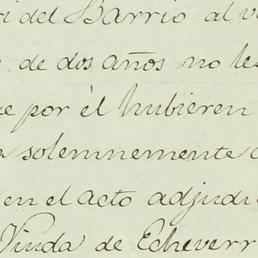 del Barrio al
de dos años no
por él hubieren
solemnemente
en el acto adjudi
Viuda de Echeverr